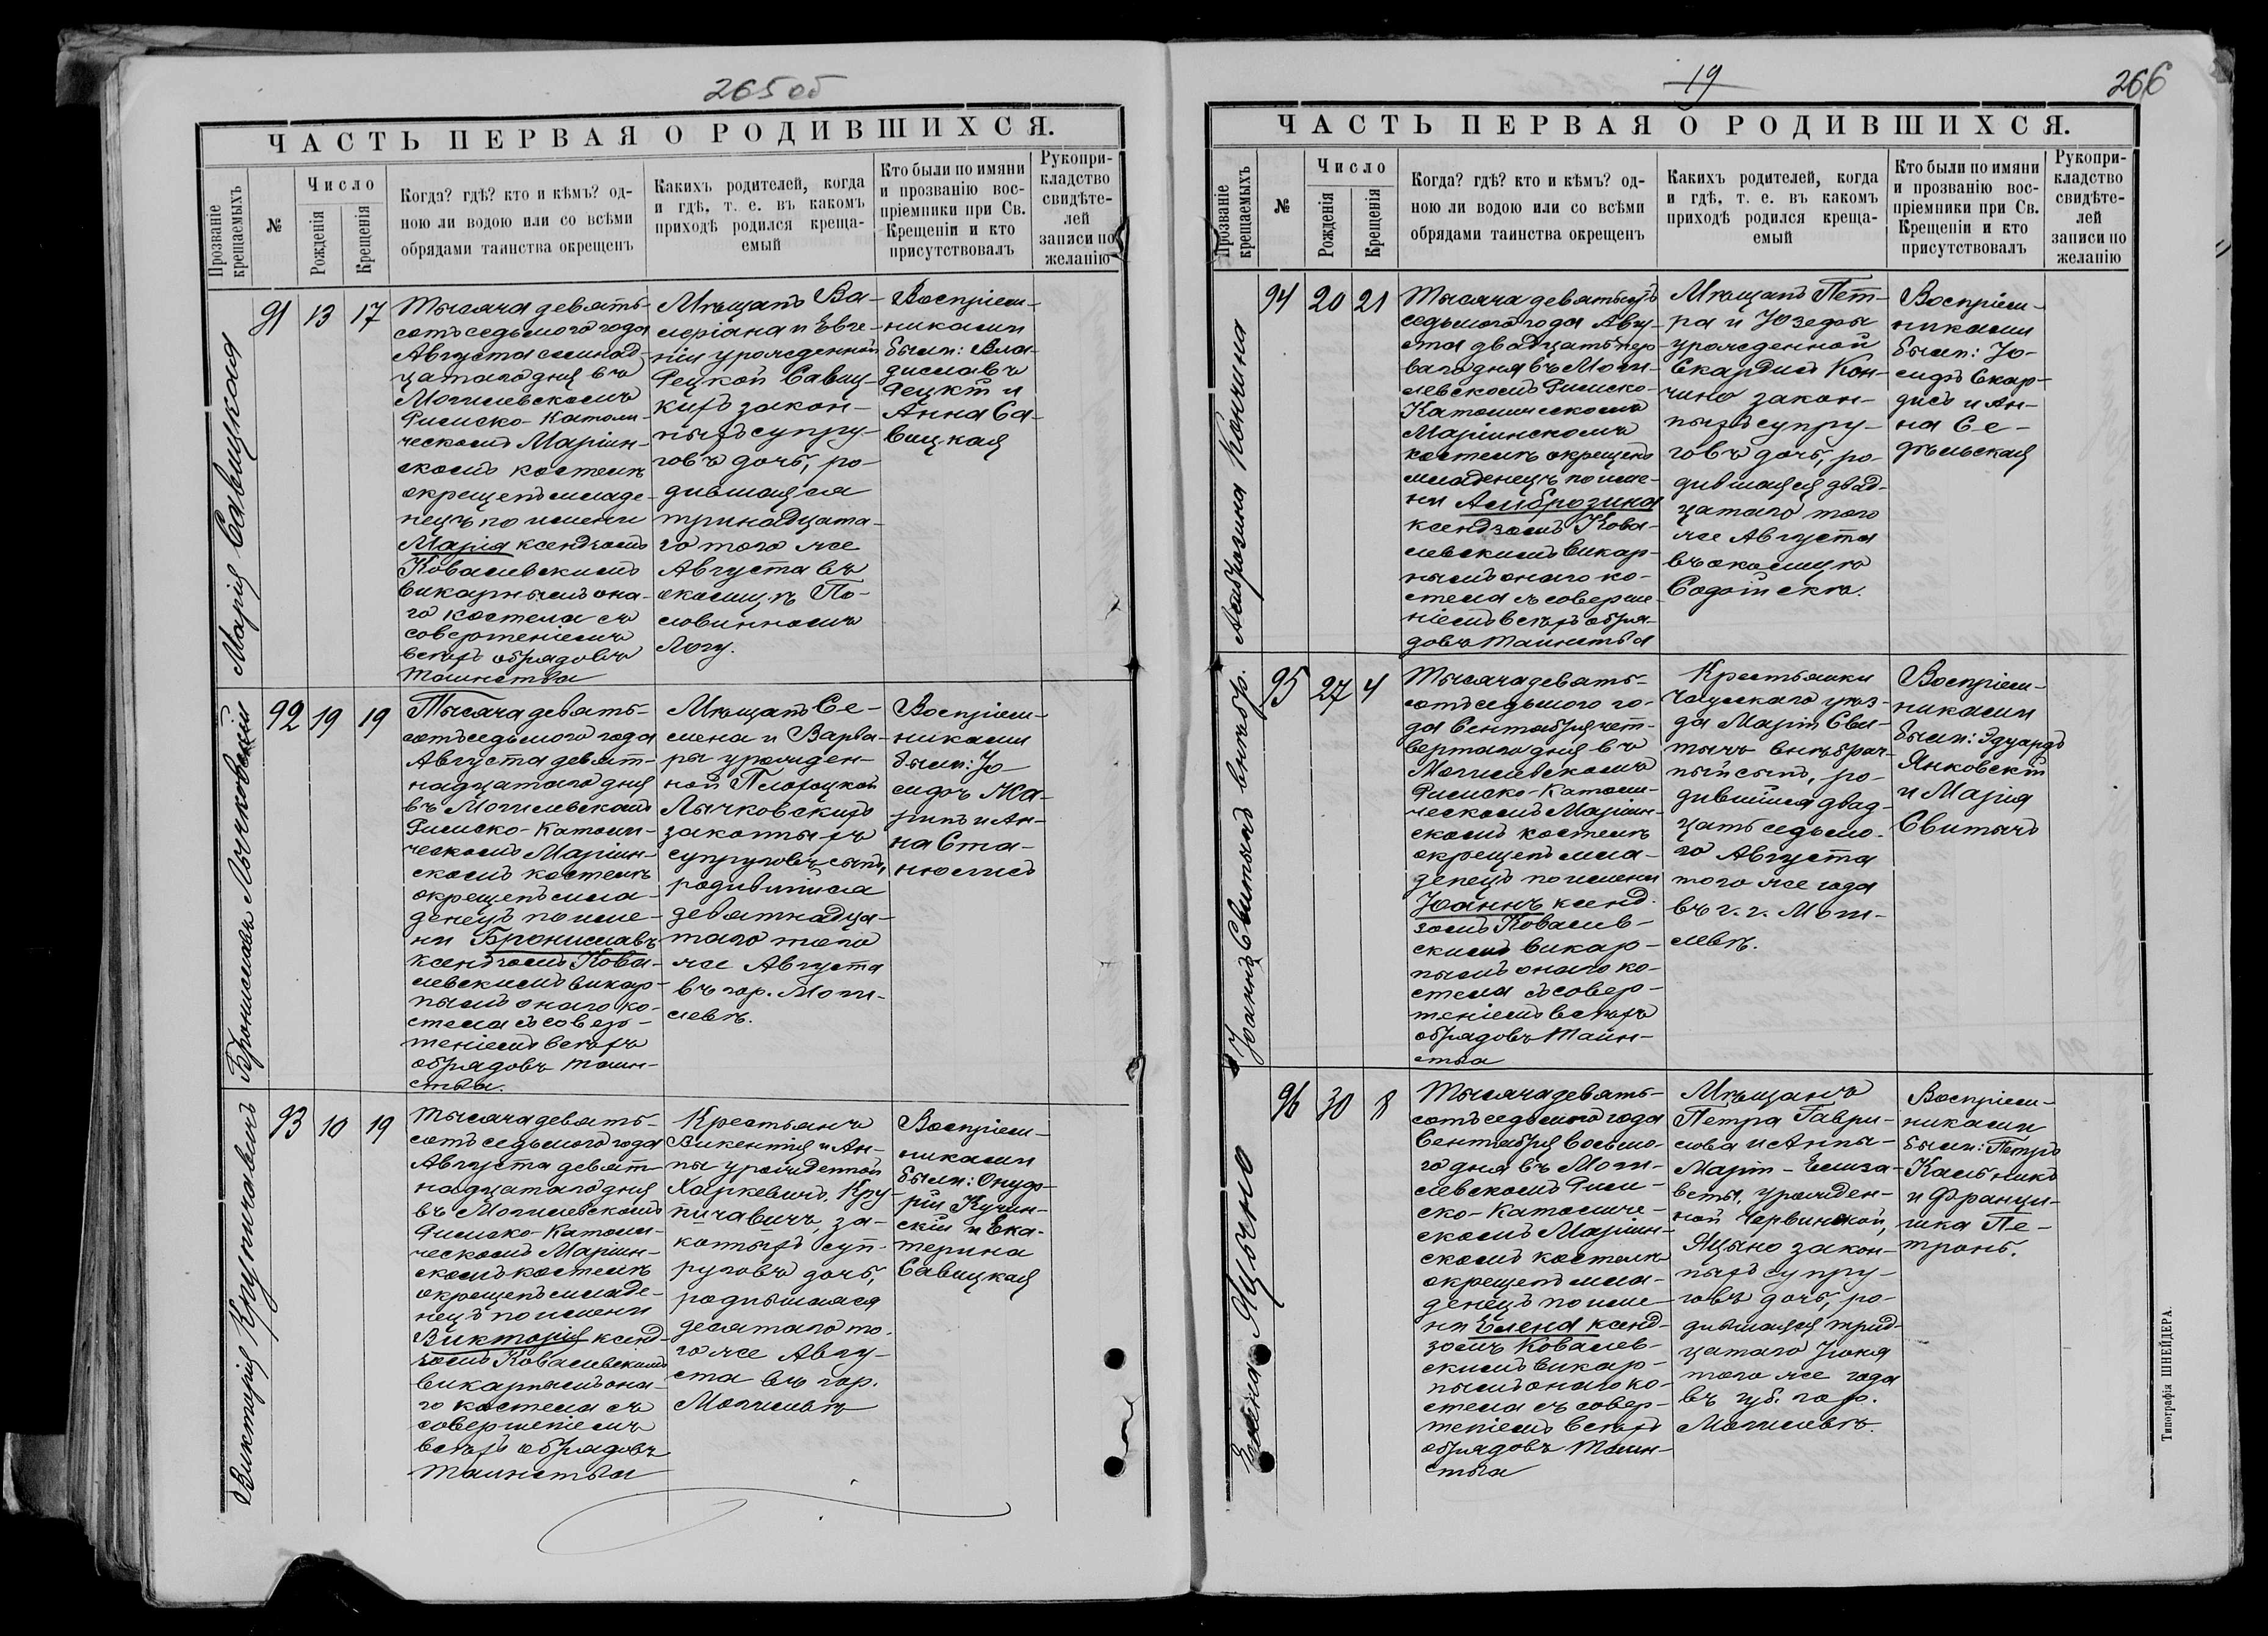 265 об
ЧАСТЬ ПЕРВАЯ О РОДИВШИХСЯ.
Прозваніе крещаемыхъ
№
Число
Рожденія
Крещенія
Когда? гдѣ? кто и кѣмъ? од-
ною ли водою или со всѣми
обрядами таинства окрещенъ
Какихъ родителей, когда
и гдѣ, т. е. въ какомъ
приходѣ родился креща-
емый
Кто были по имяни
и прозванію вос-
пріемники при Св.
Крещеніи и кто
присутствовалъ
Рукопри-
кладство
свидѣте-
лей
записи по
желанію
Марія Савицкая
91 13 17
Тысяча девять-
сотъ седьмого года
Августа семнад-
цатаго дня въ
Могилевскомъ
Римско-Католи-
ческомъ Маріин-
скомъ костелѣ
окрещенъ младе-
нецъ по имени
Марія ксендзомъ
Ковалевскимъ
викарнымъ она-
го костела съ
совершеніемъ
всѣхъ обрядовъ
таинства
Мѣщанъ Ва-
леріана и Евге-
ніи урожденной
Фецкой Савиц-
кихъ закон-
ныхъ супру-
говъ дочь, ро-
дившаяся
тринадцата-
го того же
Августа въ
околицѣ По-
ловинномъ
Логу.
Воспріем-
никами
были: Вла-
диславъ
Фецкій и
Анна Са-
вицкая
Брониславъ Лычковскій
92 19 19
Тысяча девять-
сотъ седьмого года
Августа девят-
надцатаго дня
въ Могилевскомъ
Римско-Католи-
ческомъ Маріин-
скомъ костелѣ
окрещенъ мла-
денецъ по име-
ни Брониславъ
ксендзомъ Кова-
левскимъ викар-
нымъ онаго ко-
стела съ совер-
шеніемъ всѣхъ
обрядовъ таин-
ства.
Мѣщанъ Се-
мена и Варва-
ры урожден-
ной
Лычковскихъ
законныхъ
супруговъ сынъ,
родившійся
девятнадца-
таго того
же Августа
въ гор. Моги-
левѣ.
Воспріем-
никами
были: Іо-
сифъ Жа-
и Ан-
на Ста-
Викторія Крупичавичъ
93 10 19
Тысяча девять-
сотъ седьмого года
Августа девят-
надцатаго дня
въ Могилевскомъ
Римско-Католи-
ческомъ Маріин-
скомъ костелѣ
окрещенъ младе-
нецъ по имени
Викторія ксенд-
зомъ Ковалевскимъ
викарнымъ она-
го костела съ
совершеніемъ
всѣхъ обрядовъ
таинства
Крестьянъ
Викентія и Ан-
ны урожденной
Харкевичъ, Кру-
пичавичъ за-
конныхъ суп-
руговъ дочь,
родившаяся
десятаго то-
го же Авгу-
ста въ гор.
Могилевѣ
Воспріем-
никами
были: Онуф-
рій Кучин-
скій и Ека-
терина
Савицкая
19
266
ЧАСТЬ ПЕРВАЯ О РОДИВШИХСЯ.
Прозваніе крещаемыхъ
№
Число
Рожденія
Крещенія
Когда? гдѣ? кто и кѣмъ? од-
ною ли водою или со всѣми
обрядами таинства окрещенъ
Какихъ родителей, когда
и гдѣ, т. е. въ какомъ
приходѣ родился креща-
емый
Кто были по имяни
и прозванію вос-
пріемники при Св.
Крещеніи и кто
присутствовалъ
Рукопри-
кладство
свидѣте-
лей
записи по
желанію
Амброзина Кончина
94 20 21
Тысяча девятьсотъ
седьмого года Авгу-
ста двадцать пер-
ваго дня въ Моги-
левскомъ Римско-
Католическомъ
Маріинскомъ
костелѣ окрещенъ
младенецъ по име-
ни Амброзина
ксендзомъ Кова-
левскимъ викар-
нымъ онаго ко-
стела съ соверше-
ніемъ всѣхъ обря-
довъ таинства
Мѣщанъ Пет-
ра и Юзефы
урожденной
Скардисъ Кон-
чино закон-
ныхъ супру-
говъ дочь, ро-
дившаяся двад-
цатаго того
же Августа
въ околицѣ
Воспріем-
никами
были: Іо-
сифъ Скар-
дисъ и Ан-
на Се-
Іоаннъ Свитычъ внѣбр.
95 27 4
Тысяча девять-
сотъ седьмого го-
да Сентября чет-
вертаго дня въ
Могилевскомъ
Римско-Католи-
ческомъ Маріин-
скомъ костелѣ
окрещенъ мла-
денецъ по имени
Іоаннъ ксенд-
зомъ Ковалев-
скимъ викар-
нымъ онаго ко-
стела съ совер-
шеніемъ всѣхъ
обрядовъ Таин-
ства
Крестьянки
Чаусскаго уѣз-
да Маріи Сви-
тычъ внѣбрач-
ный сынъ, ро-
дившійся двад-
цать седьмо-
го Августа
того же года
въ г. г. Моги-
левѣ.
Воспріем-
никами
были: Эдуардъ
Янковскій
и Марія
Свитычъ
Елена Яцыно
96 30 8
Тысяча девять-
сотъ седьмого года
Сентября восьмо-
го дня въ Моги-
левскомъ Рим-
ско-Католиче-
скомъ Маріин-
скомъ костелѣ
окрещенъ мла-
денецъ по име-
ни Елена ксенд-
зомъ Ковалев-
скимъ викар-
нымъ онаго ко-
стела съ совер-
шеніемъ всѣхъ
обрядовъ таин-
ства
Мѣщанъ
Петра Гаври-
лова и Анны-
Маріи-Елиза-
веты, урожден-
ной Червинской,
Яцыно закон-
ныхъ супру-
говъ дочь, ро-
дившаяся трид-
цатаго Іюня
того же года
въ губ. гор.
Могилевѣ.
Воспріем-
никами
были: Петръ
Кальникъ
и Францы-
шка Пе-
тронь.
Типографія ШНЕЙДЕРА.